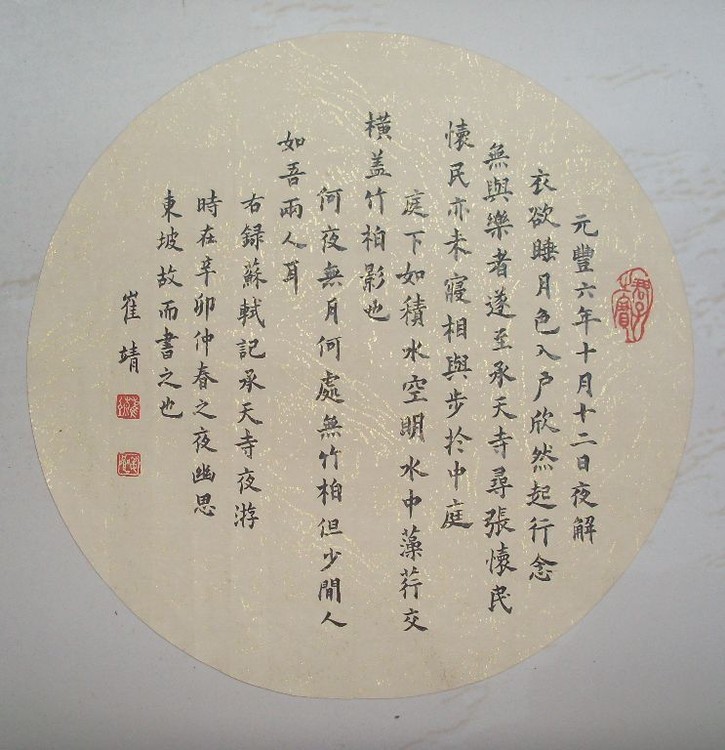 元豐六年十月十二日夜解
衣欲睡月色入戶欣然起行念
無與樂者遂至承天寺尋張懷民
懷民亦未寢相與步於中庭
庭下如積水空明水中藻荇交
橫盖竹柏影也
何夜無月何處無竹柏但少閒人
如吾兩人耳
右録蘇軾記承天寺夜游
時在辛卯仲春之夜幽思
東坡故而書之也
崔靖